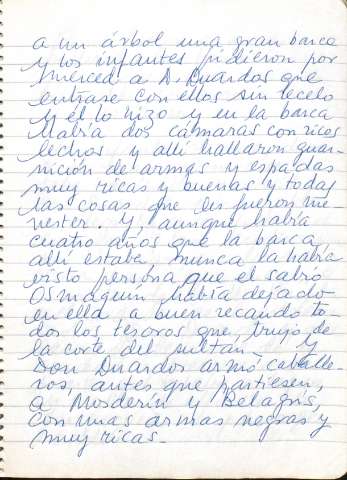 a un árbol una gran barca
y los infantes pidieron por
merced a D. Duardos que
entrase con ellos sin recelo
y él lo hizo y en la barca
había dos cámaras con ricos
lechos y allí hallaron guar-
nición de armas y espadas
muy ricas y buenas y todas
las cosas que les fueron me-
nester. Y, aunque había
cuatro años que la barca
allí estaba, nunca la había
visto persona que el sabio
Osmaquin había dejado
en ella a buen recaudo to-
dos los tesoros que trujo de
la corte del sultán_ Y
Don Duardos armó caballe-
ros, antes que partiesen,
a Mosderín y Belagrís,
con unas armas negras y
muy ricas._